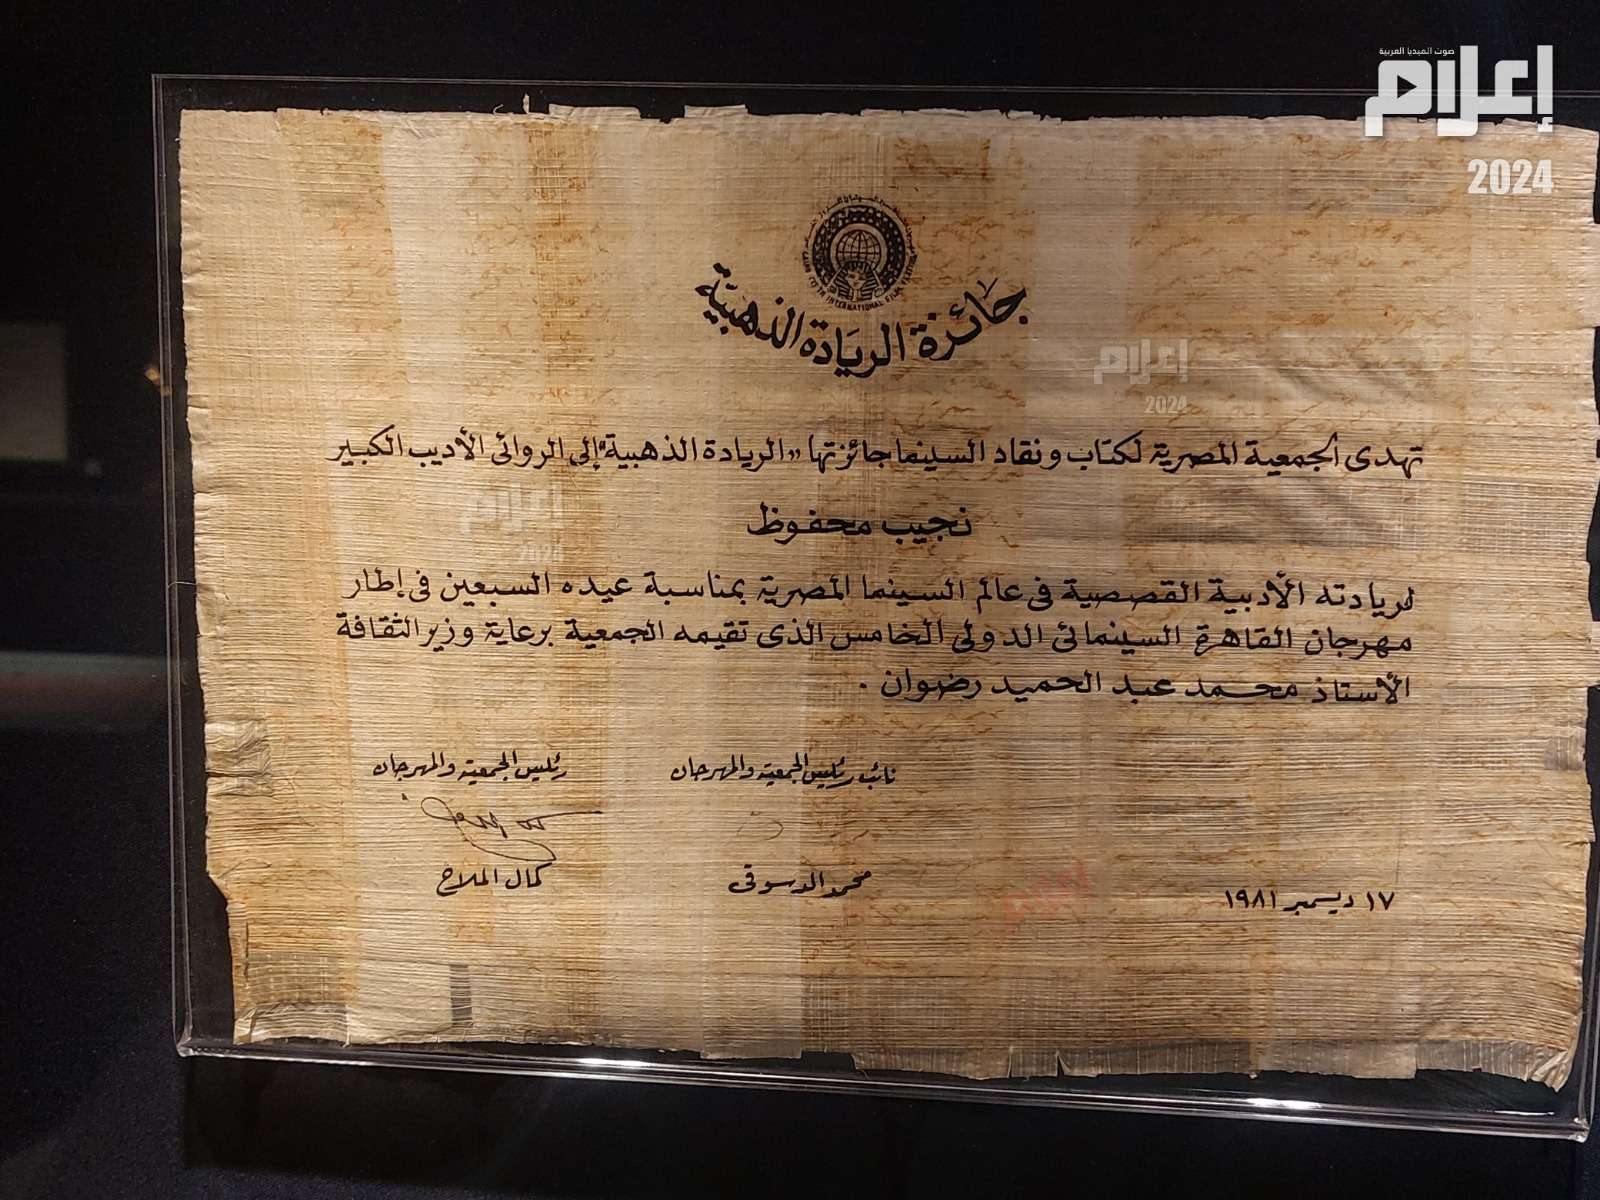 صوت الميديا العربية
إعلام
2024
CAIRO INTERNATIONAL FILM FESTIVAL
جائزة الريادة الذهبية
تهدى الجمعية المصرية لكتاب ونقاد السينما جائزتها "الريادة الذهبية" إلى الروائى الأديب الكبير
نجيب محفوظ
لريادته الأدبية القصصية فى عالم السينما المصرية بمناسبة عيده السبعين فى إطار
مهرجان القاهرة السينمائى الدولى الخامس الذى تقيمه الجمعية برعاية وزير الثقافة
الأستاذ محمد عبد الحميد رضوان .
نائب رئيس الجمعية والمهرجان
رئيس الجمعية والمهرجان
محمد الدسوقى
كمال الملاخ
١٧ ديسمبر ١٩٨١
إعلام
2024
إعلام
2024